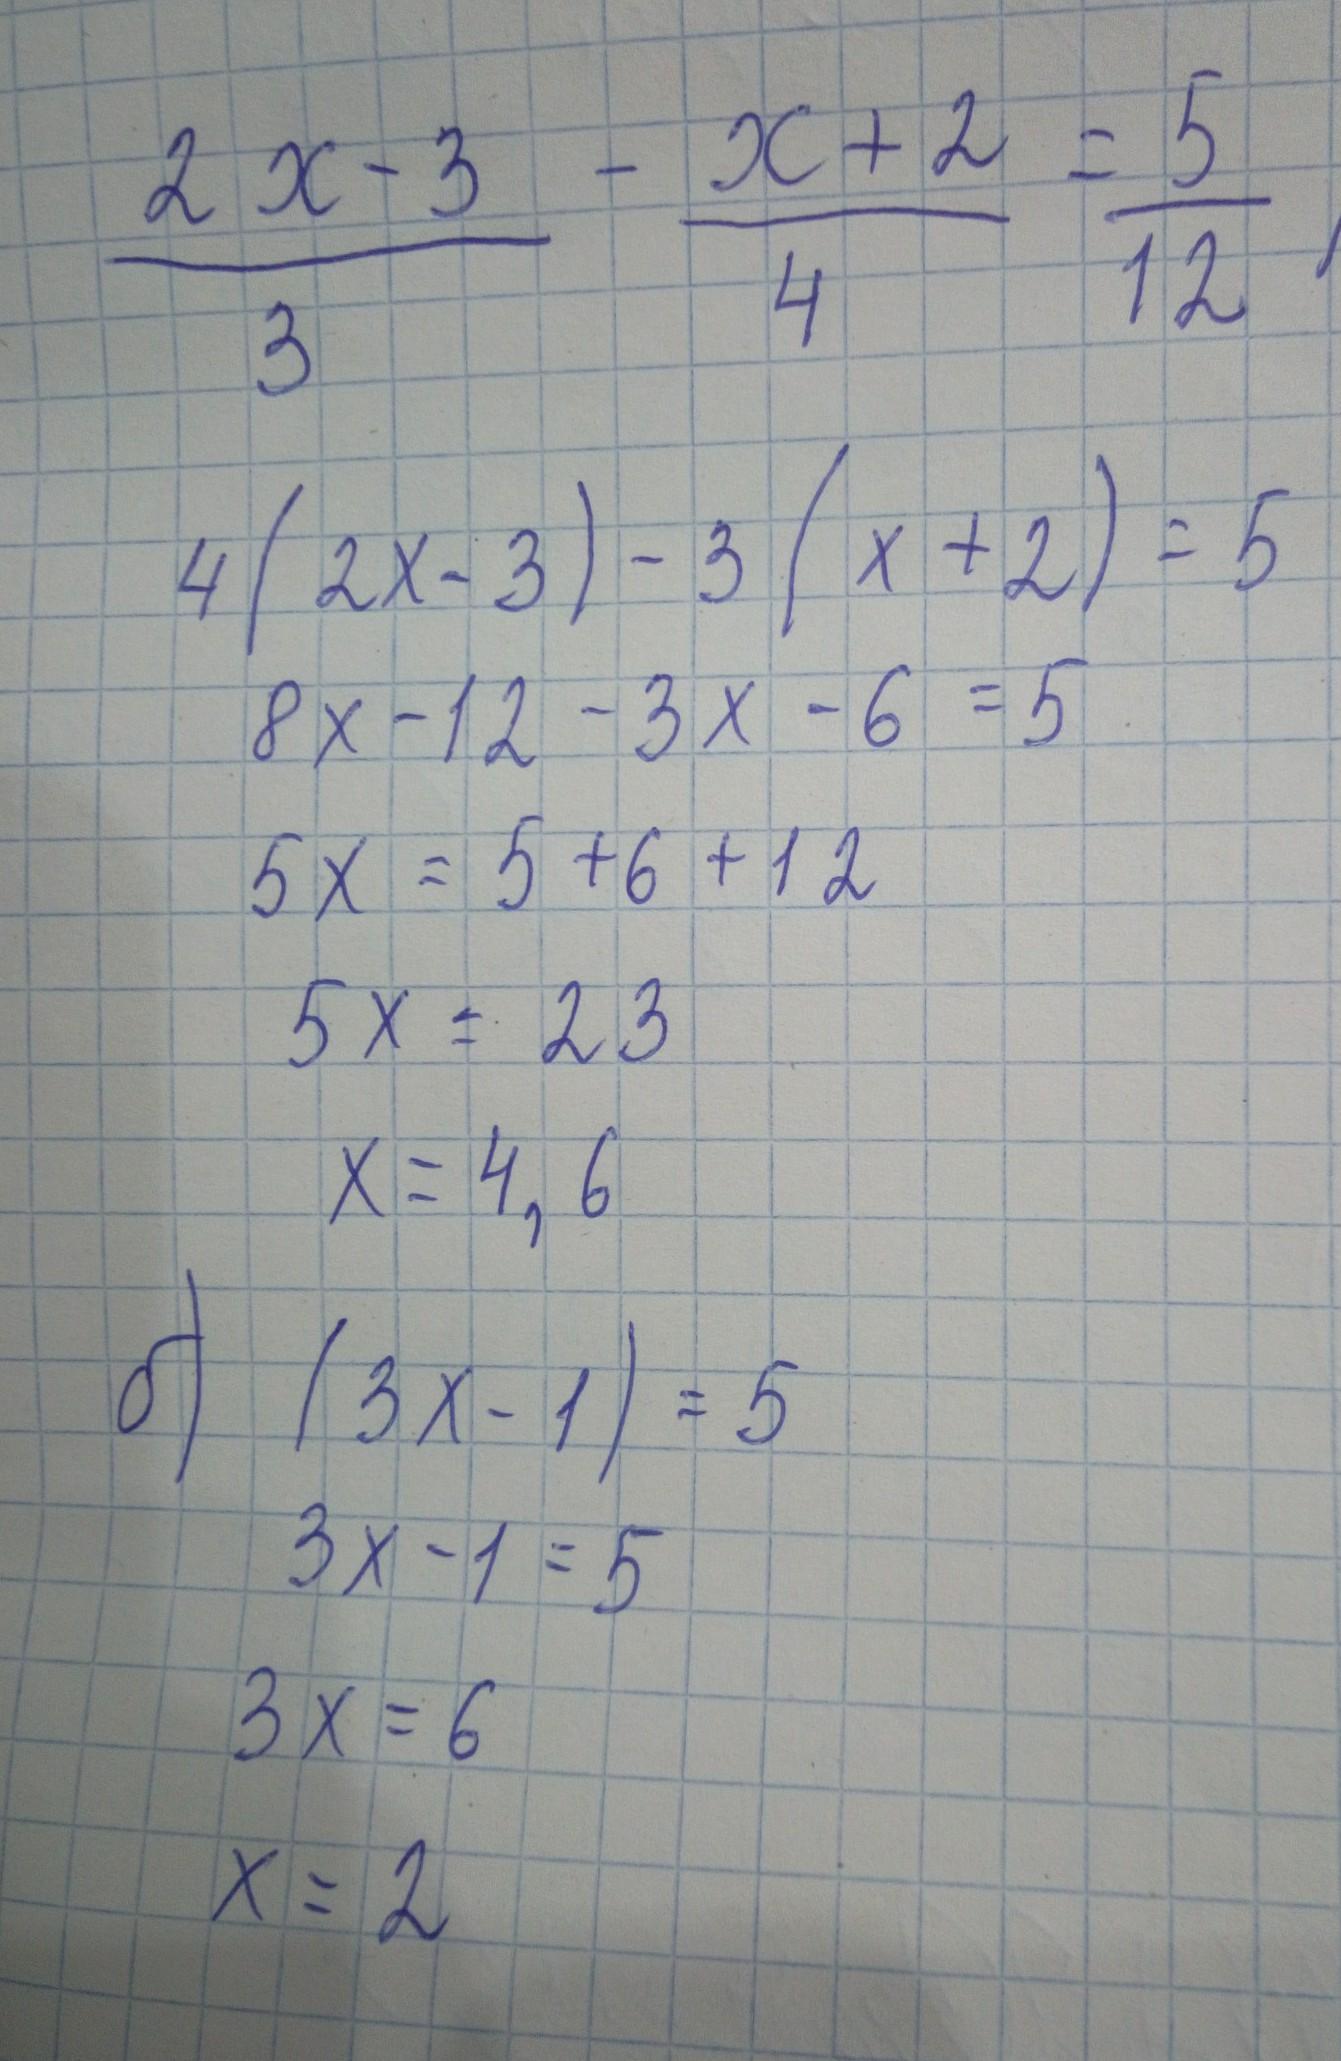 2x-3/3 - x+2/4 = 5/12
4(2x-3)-3(x+2)=5
8x-12-3x-6=5
5x=5+6+12
5x=23
x=4,6
б) (3x-1)=5
3x-1=5
3x=6
x=2